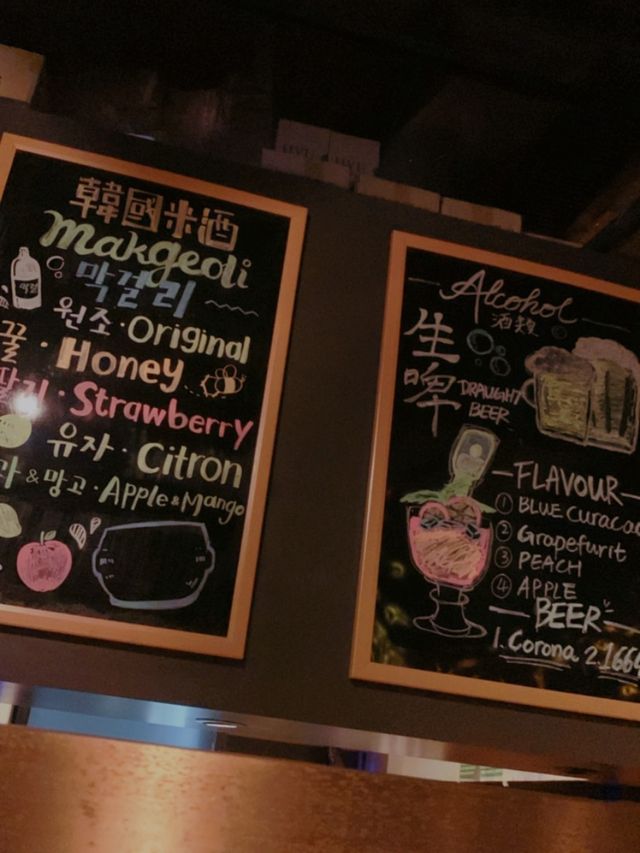 韓國米酒
makgeoli
막걸리
원소·Original
꿀·Honey
딸기·Strawberry
유자·Citron
과&망고·Apple&Mango
Alcohol
酒類
生啤
DRAUGHT
BEER
FLAVOUR
① BLUE Curacao
② Grapefurit
③ PEACH
④ APPLE
BEER
1.Corona 2.1664